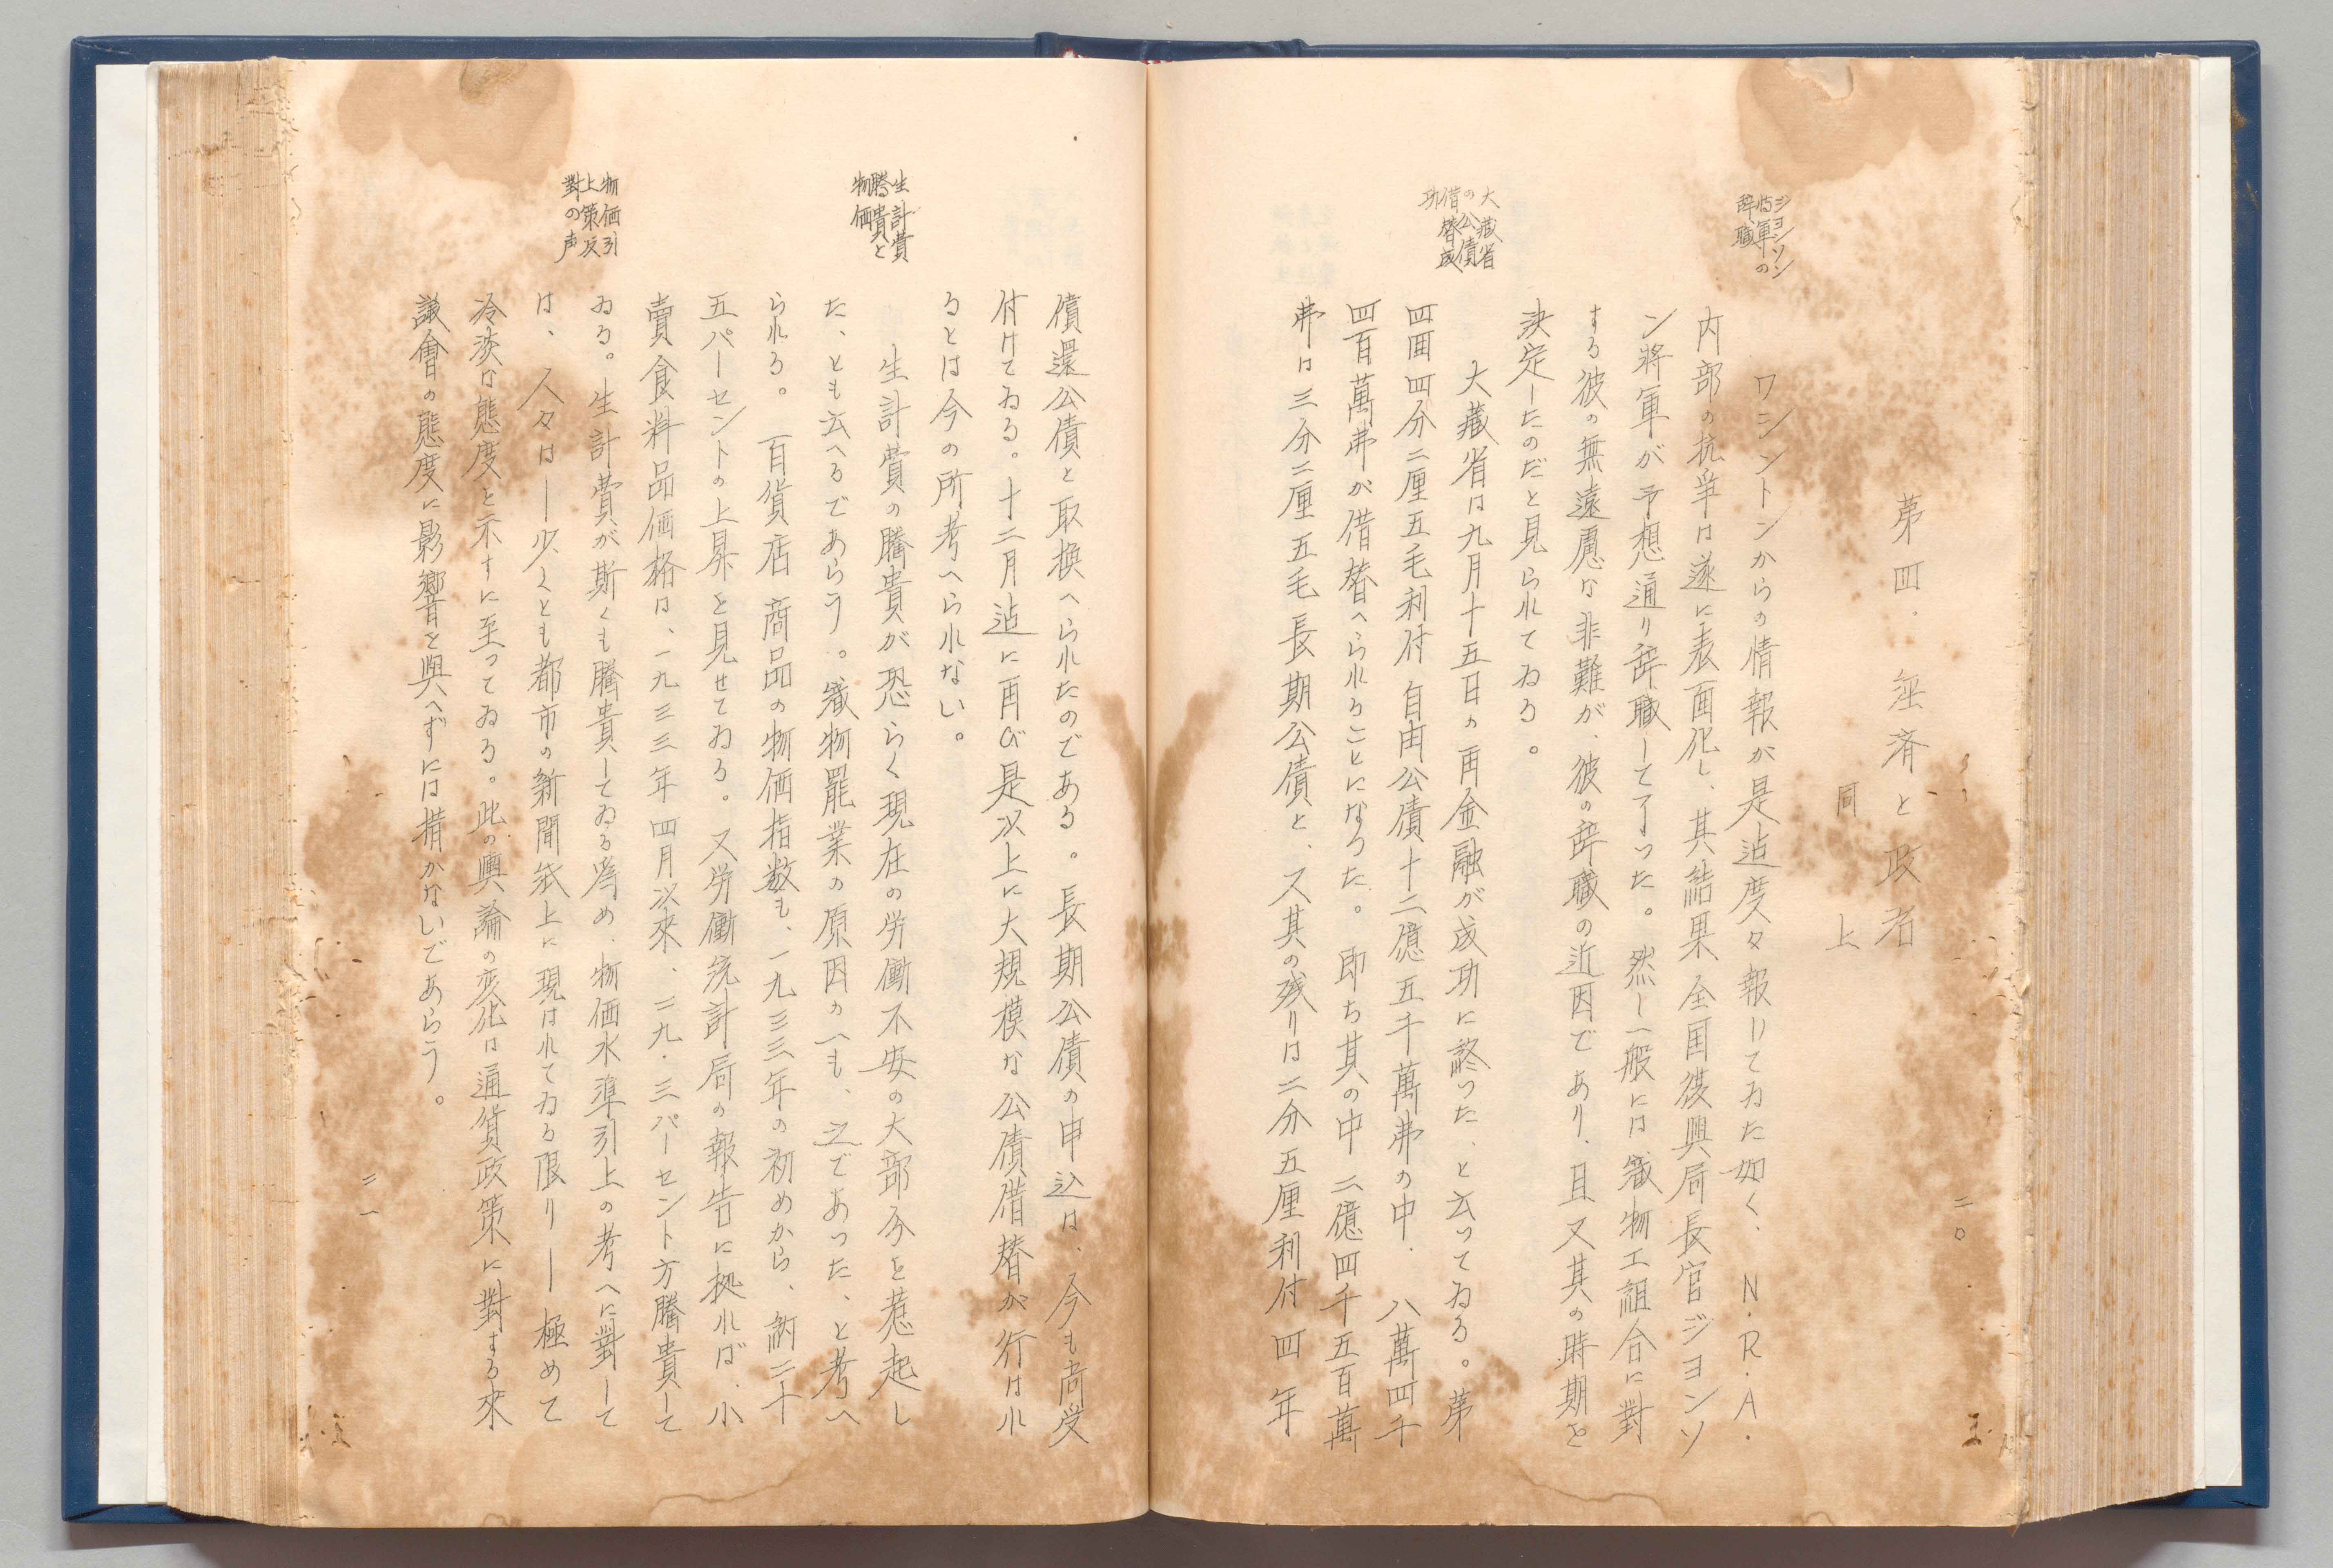 二〇
第四．経済と政治
同上
ジョンソン
将軍の
辞職
ワシントンからの情報が是迄度々報じてゐた如く、N.R.A.
内部の抗争は遂に表面化し、其結果全国復興局長官ジョンソ
ン将軍が予想通り辞職して了つた。然し一般には織物工組合に對
する彼の無遠慮な非難が、彼の辞職の近因であり、且又其の時期を
決定したのだと見られてゐる。
大蔵省
の公債
借替成
功
大蔵省は九月十五日の再金融が成功に終つた、と云つてゐる。第
四回四分二厘五毛利付自由公債十二億五千萬弗の中、八萬四千
四百萬弗が借替へられることになつた。即ち其の中二億四千五百萬
弗は三分二厘五毛長期公債と、又其の残りは二分五厘利付四年
債還公債と取換へられたのである。長期公債の申込は、今も尚受
付けてゐる。十二月迄に再び是以上に大規模な公債借替が行はれ
るとは今の所考へられない。
生計費
騰貴と
物価
生計費の騰貴が恐らく現在の労働不安の大部分を惹起し
た、とも云へるであらう。織物罷業の原因の一も、之であつた、と考へ
られる。百貨店商品の物価指数も、一九三三年の初めから、約二十
五パーセントの上昇を見せてゐる。又労働統計局の報告に拠れば、小
賣食料品価格は、一九三三年四月以來、二九．三パーセント方騰貴して
ゐる。生計費が斯くも騰貴してゐる為め、物価水準引上の考へに對して
物価引
上策反
對の声
は、人々は―少くとも都市の新聞紙上に現はれてゐる限り―極めて
冷淡な態度を示すに至つてゐる。此の輿論の変化は通貨政策に對する來
議會の態度に影響を與へずには措かないであらう。
二一